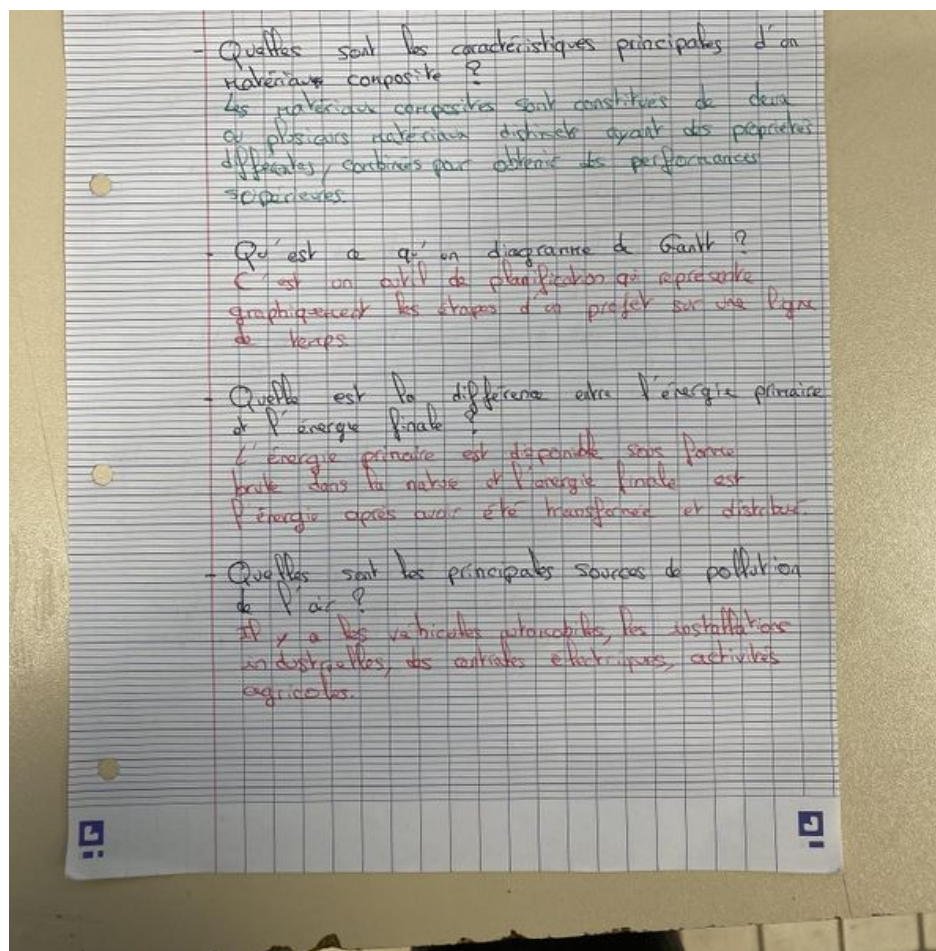 - Quelles sont les caractéristiques principales d'un
matériaux composite ?
Les matériaux composites sont constitués de deux
ou plusieurs matériaux distincts ayant des propriétés
différentes, combinés pour obtenir des performances
supérieures.
- Qu'est ce qu'un diagramme de Gantt ?
C'est un outil de planification qui représente
graphiquement les étapes d'un projet sur une ligne
de temps.
- Quelle est la différence entre l'énergie primaire
et l'énergie finale ?
L'énergie primaire est disponible sous forme
brute dans la nature et l'énergie finale est
l'énergie après avoir été transformée et distribué.
- Quelles sont les principales sources de pollution
de l'air ?
Il y a les véhicules automobiles, les installations
industrielles, des centrales électriques, activités
agricoles.